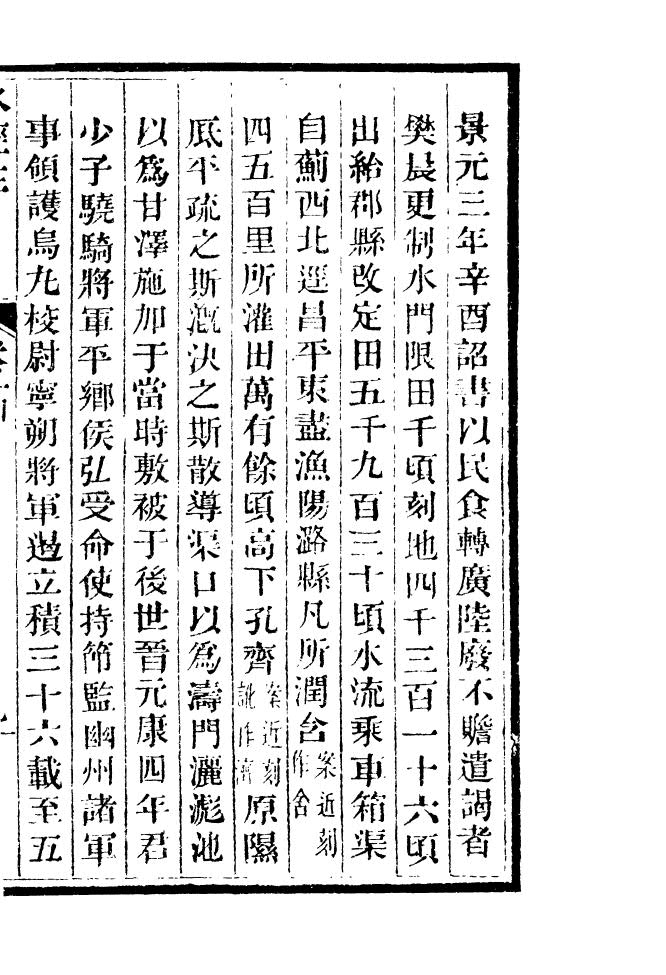 景元三年辛酉詔書以民食轉廣陸廢不贍遣謁者
樊晨更制水門限田千頃刻地四千三百一十六頃
出給郡縣改定田五千九百三十頃水流乘車箱渠
自薊西北逕昌平東盡漁陽潞縣凡所潤含案近刻作舍
四五百里所灌田萬有餘頃高下孔齊案近刻訛作濟原隰
底平疏之斯溉決之斯散導渠口以爲濤門灑滮池
以爲甘澤施加于當時敷被于後世晉元康四年君
少子驍騎將軍平鄉侯弘受命使持節監幽州諸軍
事領護烏丸校尉寧朔將軍遏立積三十六載至五
水經注 卷十四